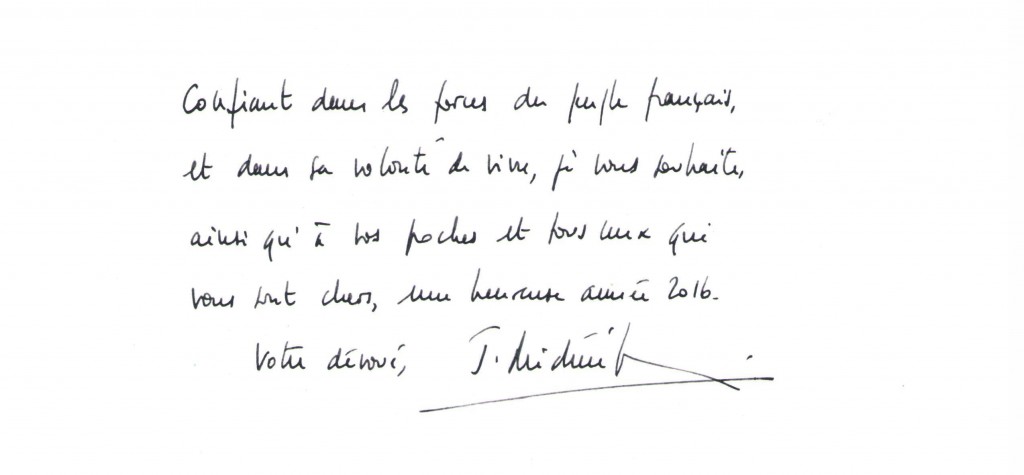 Confiant dans les forces du peuple français,
et dans sa volonté de vivre, je vous souhaite,
ainsi qu'à vos proches et tous ceux qui
vous sont chers, une heureuse année 2016.
Votre dévoué,